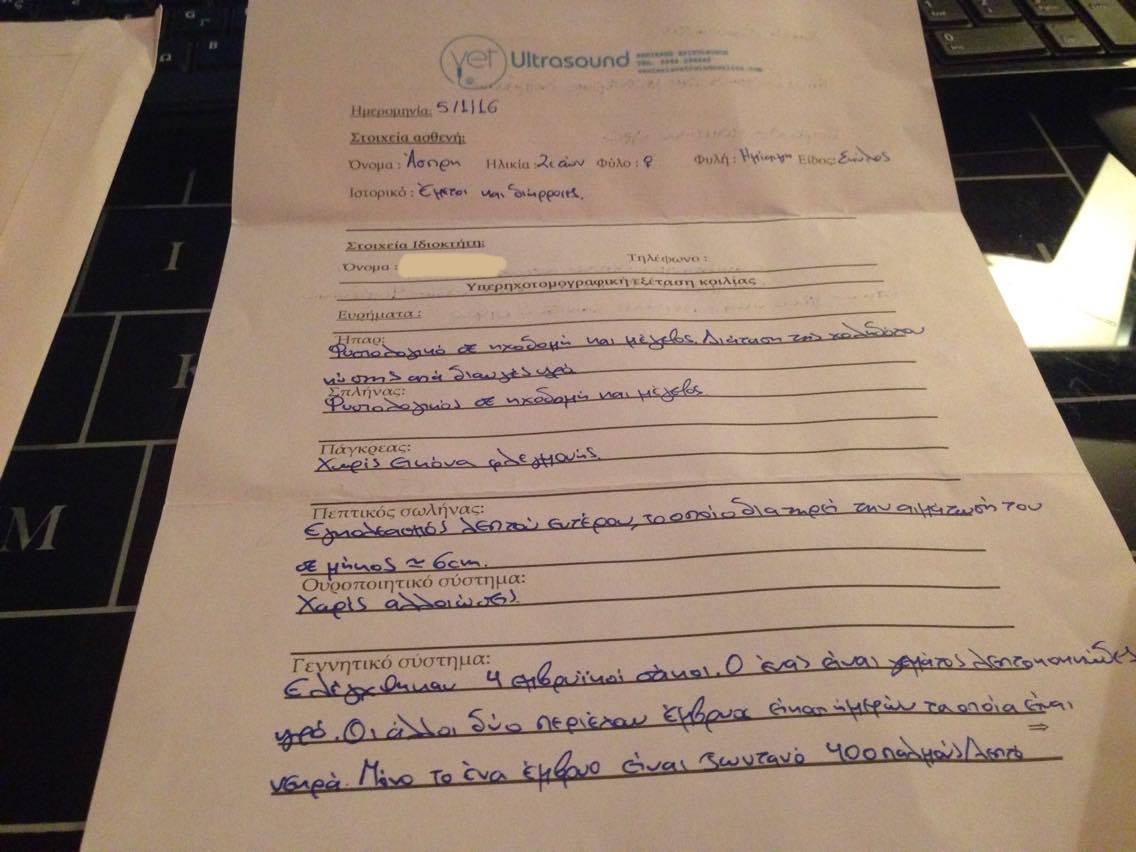 vet Ultrasound
Ημερομηνία: 5/1/16
Στοιχεία ασθενή:
Όνομα : Άσπρη Ηλικία : 2 ετών Φύλο : ♀ Φυλή : Ημίαιμη Είδος: Σκύλος
Ιστορικό : Έμετοι και διάρροιες.
Στοιχεία Ιδιοκτήτη:
Όνομα : Τηλέφωνο :
Υπερηχοτομογραφική εξέταση κοιλίας
Ευρήματα :
Ήπαρ:
Φυσιολογικό σε ηχοδομή και μέγεθος. Διάταση της χοληδόχου
κύστης από διαυγές υγρό
Σπλήνας:
Φυσιολογικός σε ηχοδομή και μέγεθος
Πάγκρεας:
Χωρίς εικόνα φλεγμονής.
Πεπτικός σωλήνας:
Εγκολεασμός λεπτού εντέρου, το οποίο διατηρεί την αιμάτωσή του
σε μήκος ≈ 6cm.
Ουροποιητικό σύστημα:
Χωρίς αλλοιώσεις.
Γεννητικό σύστημα:
Ελέγχθηκαν 4 εμβρυϊκοί σάκοι. Ο ένας είναι γεμάτος
υγρό. Οι άλλοι δύο περιέχουν έμβρυα είκοσι ημερών τα οποία είναι
νεκρά. Μόνο το ένα έμβρυο είναι ζωντανό 400 παλμούς/λεπτό ⇒